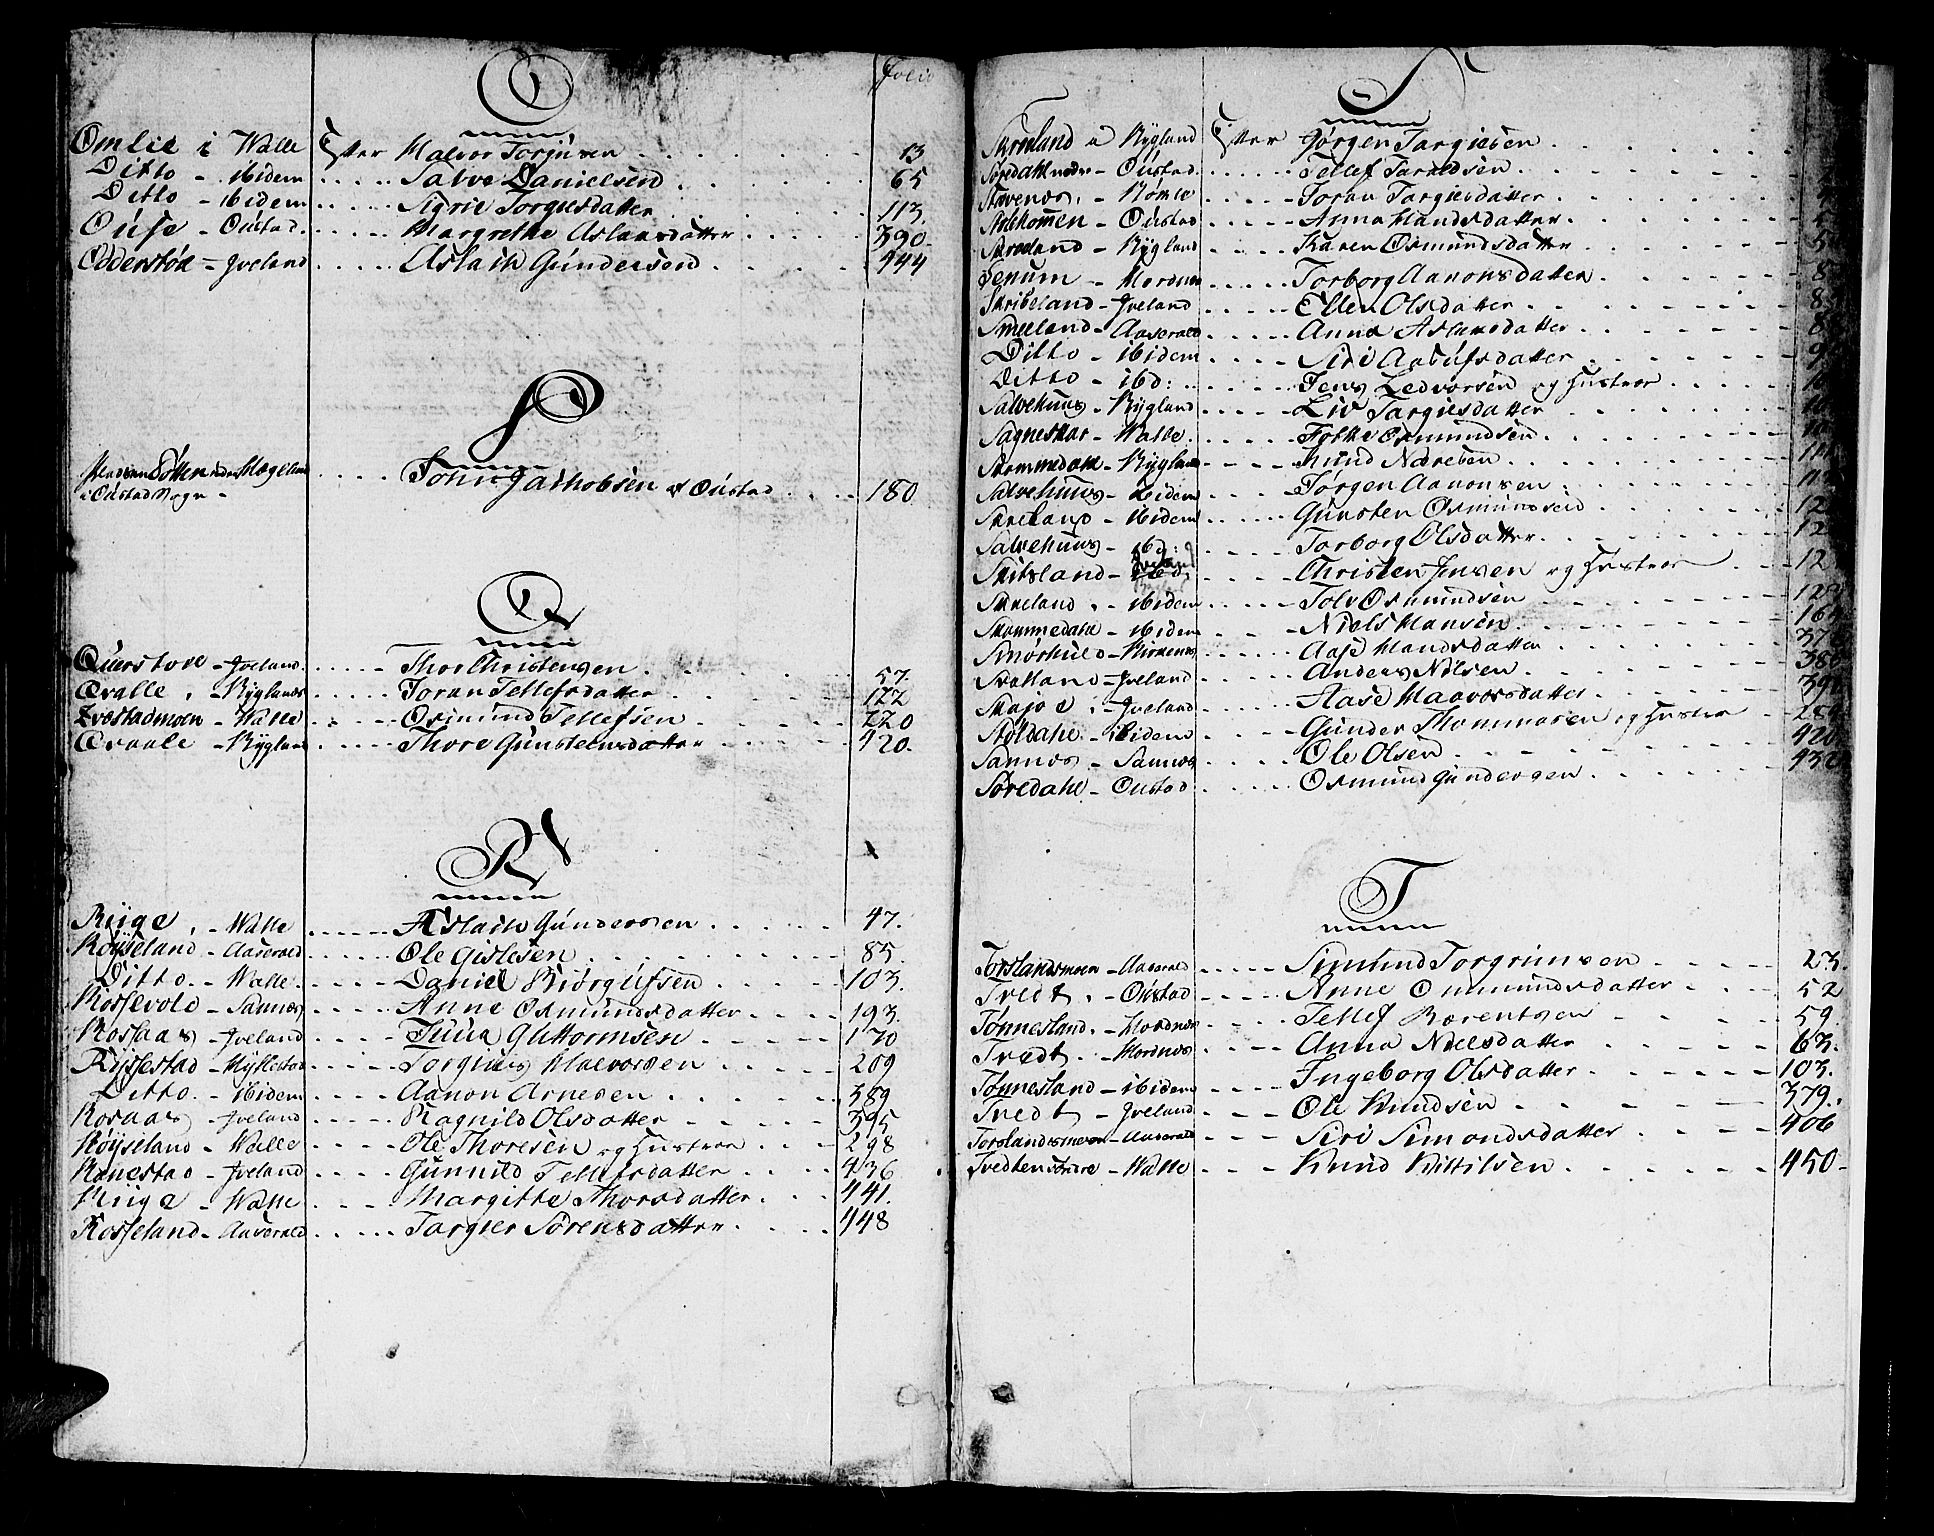 O
Folio
Omlie i Walle Efter Halvor Torjusen 13
Ditto - ibidem Salve Danielsen 65
Ditto - ibidem Sigrie Torgiesdatter 113.
Ouse - Oustad. Margrethe Aslansdatter 390.
Odderstøe - Iveland Aslaik Gundersen 444
P
Pladsen under Mægeland
i Oustad Sogn - John Jakhobsen af Oustad 180.
Q
Querstove - Iveland. Thor Christensen 57.
Qvalle. - Bÿgland Joran Tellefsdatter 122
Qvæstadmoen - Walle Osmund Tellefsen 220
Qvaale - Bÿgland Thore Gunsteensdatter 420.
R
Riige. - Walle Aslaik Gundersen 47.
Røÿseland - Aaserald Ole Gislesen 85.
Ditto. - Walle. Daniel Biørgufsen 103.
Rossevold - Sannes Anne Osmundsdatter 193.
Rosaas - Iveland Juua Guttormsen 170
Rÿssestad - Hÿllestad Torgius Halvorsen 209
Ditto. - ibidem Aanon Arnesen 389
Rosaas - Iveland Ragnild Olsdatter 395
Røÿseland - Walle Ole Thoresen og Hustroe 298
Ranestad - Iveland Gunnild Tellefsdatter 436
Riige - Walle Margitte Thorsdatter 441.
Rosseland - Aaserald Targier Sørensdatter 448
S
Skreland i Bÿgland Efter Jørgen Targiesen
Søredahl nedre - Oustad Tellef Taraldsen
Stavenes. - Hømle Joran Targiesdatter
Stehomen - Oustad Anna Handsdatter
Skreeland - Bÿgland Karen Osmundsdatter 5
Senum - Hordnes Torborg Aanonsdatter 8
Skribeland - Iveland Ellen Olsdatter 8
Smeeland - Aaserald Anna Aslansdatter 8
Ditto - ibidem Siri Aasufsdatter 9
Ditto - ibd: Jens Ledvorsen og Hustroe
Salvehuus - Bÿgland Liv Targiesdatter
Sagneskar - Walle. Folke Osmundsen
Skommedahl - Bÿgland Knud Næresen
Salvehuus - ibidem Jørgen Aanonsen
Skreland - ibidem Gunsten Osmundsen 12
Salvehuus - ibd: Torborg Olsdatter 12
Skitsland - Iveland Christen Jensen og Hustroe 12
Skreland. - ibidem Tolv Osmundsen 12
Skommedahl - ibidem Niels Hansen. 16
Smørhuld - Birkenes Aase Handsdatter 37
Skatland - Iveland Anders Nilsen 38
Skajoe. - Iveland Aase Haavorsdatter 39
Støldahl. - ibidem Gunder Thommasen og Hustroe 28
Sannes - Sannes Ole Olsen 420
Søredahl - Oustad Osmund Gundersen 432
T
Torslandsmoen - Aaserald Simund Torgrimsen 23.
Tredt. - Oustad Anne Ommundsdatter 52
Tønnesland. - Hordnes Tellef Bærentsen 59.
Tredt. - Hordnes Anna Nielsdatter 63.
Tønnesland - ibidem Ingeborg Olsdatter 103.
Tredt - Iveland Ole Knudsen 379.
Torslandsmoen - Aaserald Siri Simondsdatter 406
Tredten Store - Walle Knud Kittilsen 450 -